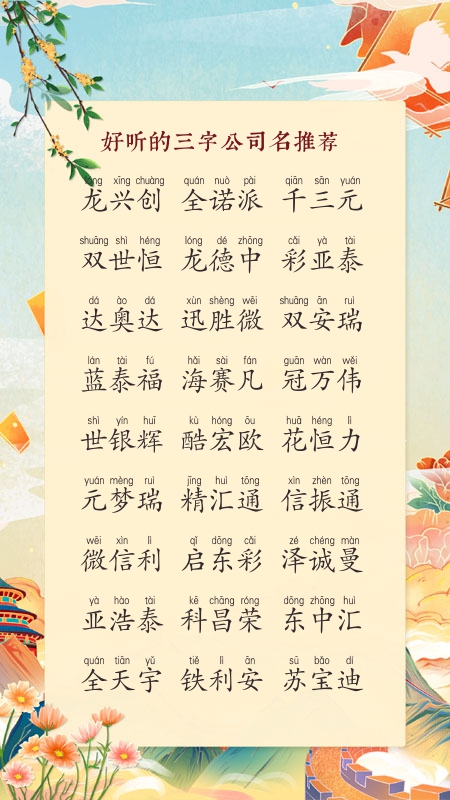 好听的三字公司名推荐
lóng xīng chuàng quán nuò pài qiān sān yuán
龙兴创 全诺派 千三元
shuāng shì héng lóng dé zhōng cǎi yà tài
双世恒 龙德中 彩亚泰
dá ào dá xùn shèng wēi shuāng ān ruì
达奥达 迅胜微 双安瑞
lán tài fú hǎi sài fán guān wàn wěi
蓝泰福 海赛凡 冠万伟
shì yín huī kù hóng ōu huā héng lì
世银辉 酷宏欧 花恒力
yuán mèng ruì jīng huì tōng xìn zhèn tōng
元梦瑞 精汇通 信振通
wēi xìn lì qǐ dōng cǎi zé chéng màn
微信利 启东彩 泽诚曼
yà hào tài kē chāng róng dōng zhōng huì
亚浩泰 科昌荣 东中汇
quán tiān yǔ tiě lì ān sū bǎo dí
全天宇 铁利安 苏宝迪